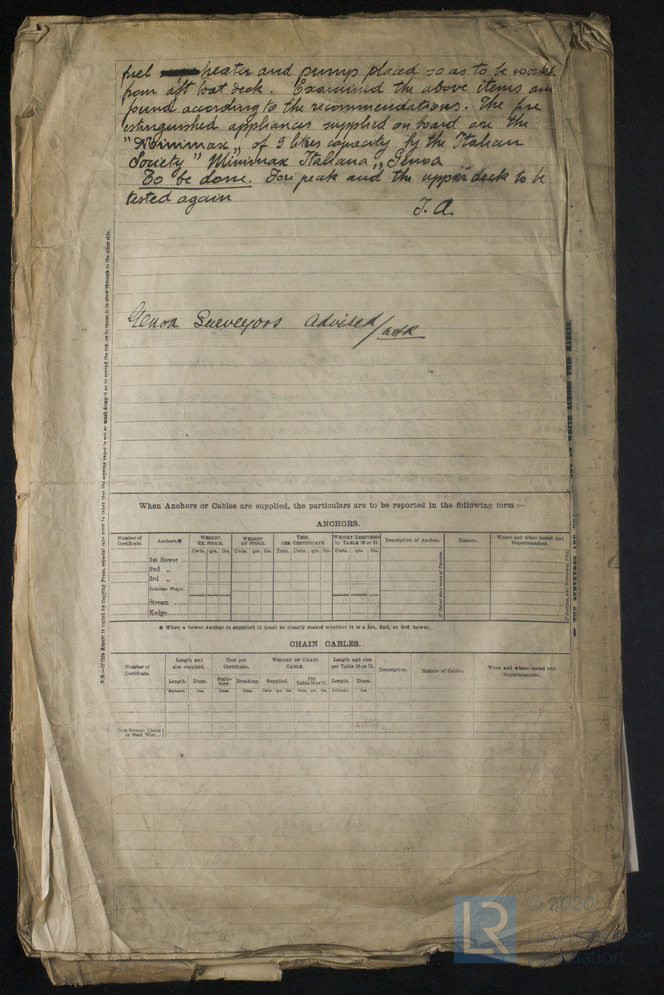 fuel heater and pumps placed so as to be worked
from aft boat deck. Examined the above items and
found according to the recommendations. The fire
estinguished appliances supplied on board are the
"Minimax" of 9 litres capacity by the Italian
Society "Minimax Italiana" Genoa
To be done. Fore peak and the upper deck to be
tested again
J. A.
Genoa Surveyors advised
When Anchors or Cables are supplied, the particulars are to be reported in the following form :—
ANCHORS.
Number of Certificate. Anchors.* WEIGHT, EX. STOCK. WEIGHT OF STOCK. TEST, PER CERTIFICATE. WEIGHT REQUIRED by TABLE 30 or 31. Description of Anchor. Makers. When and where tested and Superintendent.
Cwts. qrs. lbs. Cwts. qrs. lbs. Tons. Cwts. qrs. lbs. Cwts. qrs. lbs.
1st Bower ..
2nd „
3rd „
Collective Weight.
Stream ......
Kedge.......
* When a bower anchor is supplied it must be clearly stated whether it is a 1st, 2nd, or 3rd bower.
CHAIN CABLES.
Number of Certificate. Length and size supplied. Test per Certificate. WEIGHT OF CHAIN CABLE. Length and size per Table 30 or 31. Description. Makers of Cables. When and where tested and Superintendent.
Length. Diam. Statutory. Breaking. Supplied. Per Table 30 or 31. Length. Diam.
Fathoms. Ins. Tons. Tons. Cwts. qrs. lbs. Cwts. qrs. lbs. Fathoms. Ins.
Iron Stream Chain or Steel Wire...
LR © 2020
Lloyd's Register
Foundation